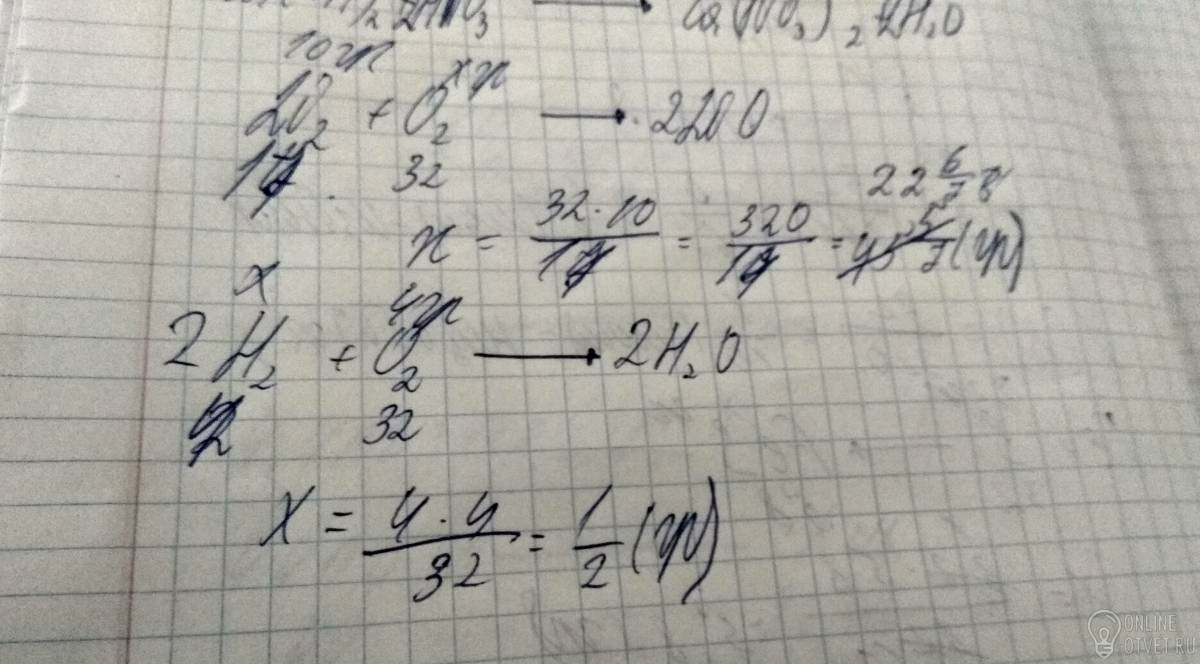 2HNO₃ → Ca(NO₃)₂ + 2H₂O
10гр xгр
2Li₂ + O₂ → 2Li₂O
14 32
x = 32·10/14 = 320/14 = 22 6/7 (гр)
x 4гр
2H₂ + O₂ → 2H₂O
4 32
X = 4·4/32 = 1/2 (гр)
ONLINE
OTVET.RU